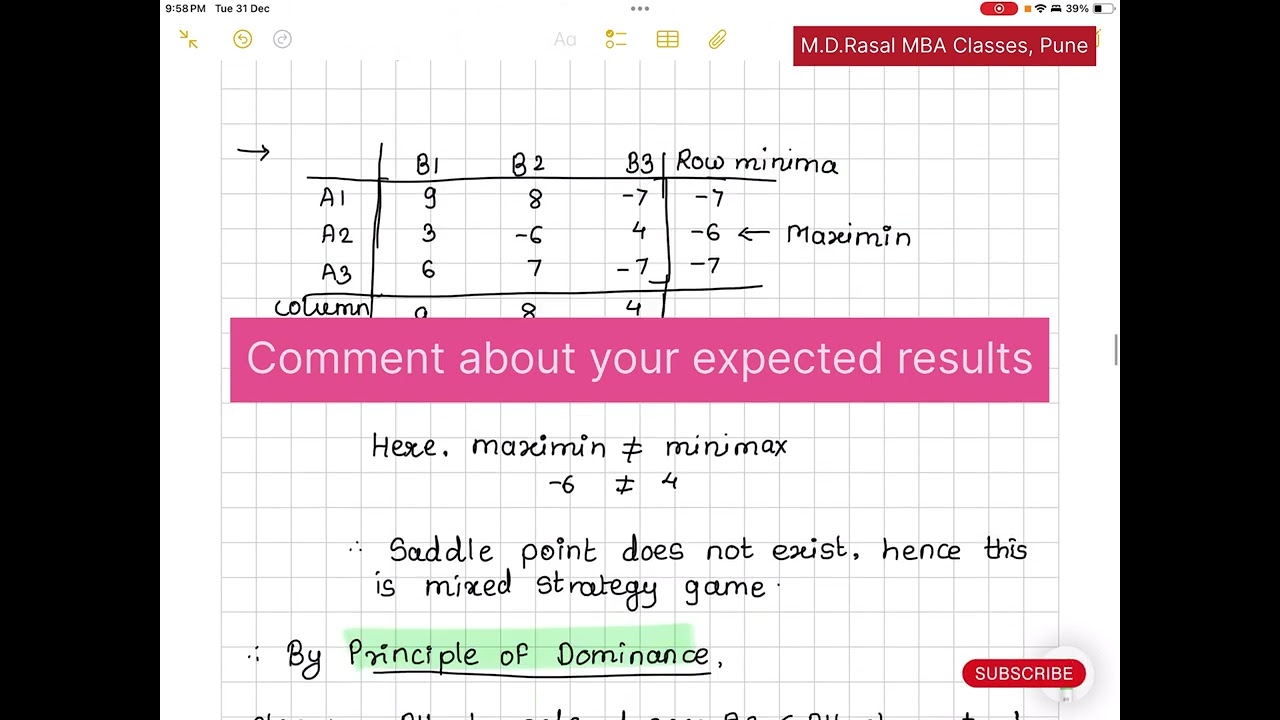 9:58 PM Tue 31 Dec
39%
Aa
M.D.Rasal MBA Classes, Pune
→ B1 B2 B3 Row minima
A1 9 8 -7 -7
A2 3 -6 4 -6 ← Maximin
A3 6 7 -7 -7
column 8 4
Comment about your expected results
Here. maximin ≠ minimax
-6 ≠ 4
∴ Saddle point does not exist, hence this
is mixed strategy game.
∴ By Principle of Dominance,
SUBSCRIBE